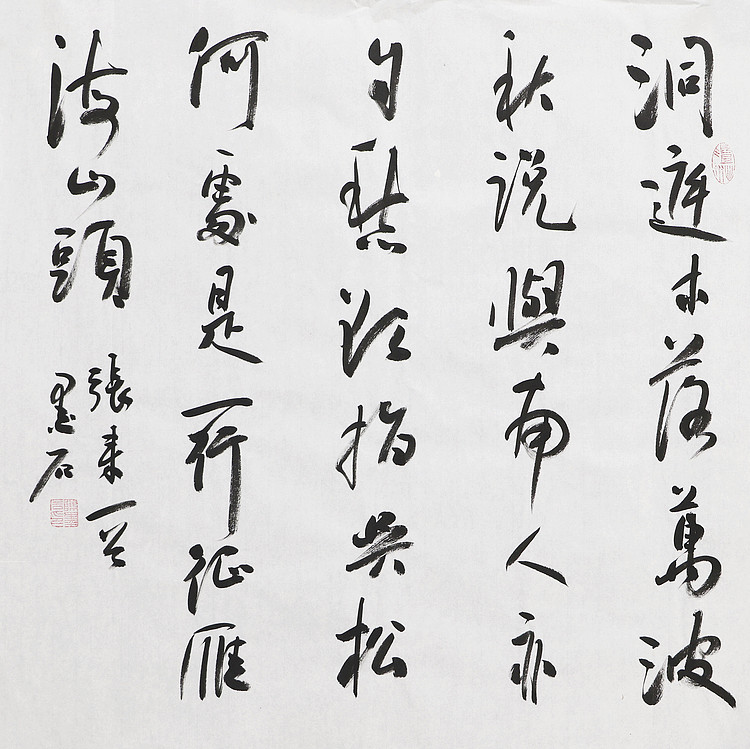 洞庭木落萬波
秋说與南人亦
自愁欲指吳松
何處是一行征雁
海山頭
張耒一首
墨石